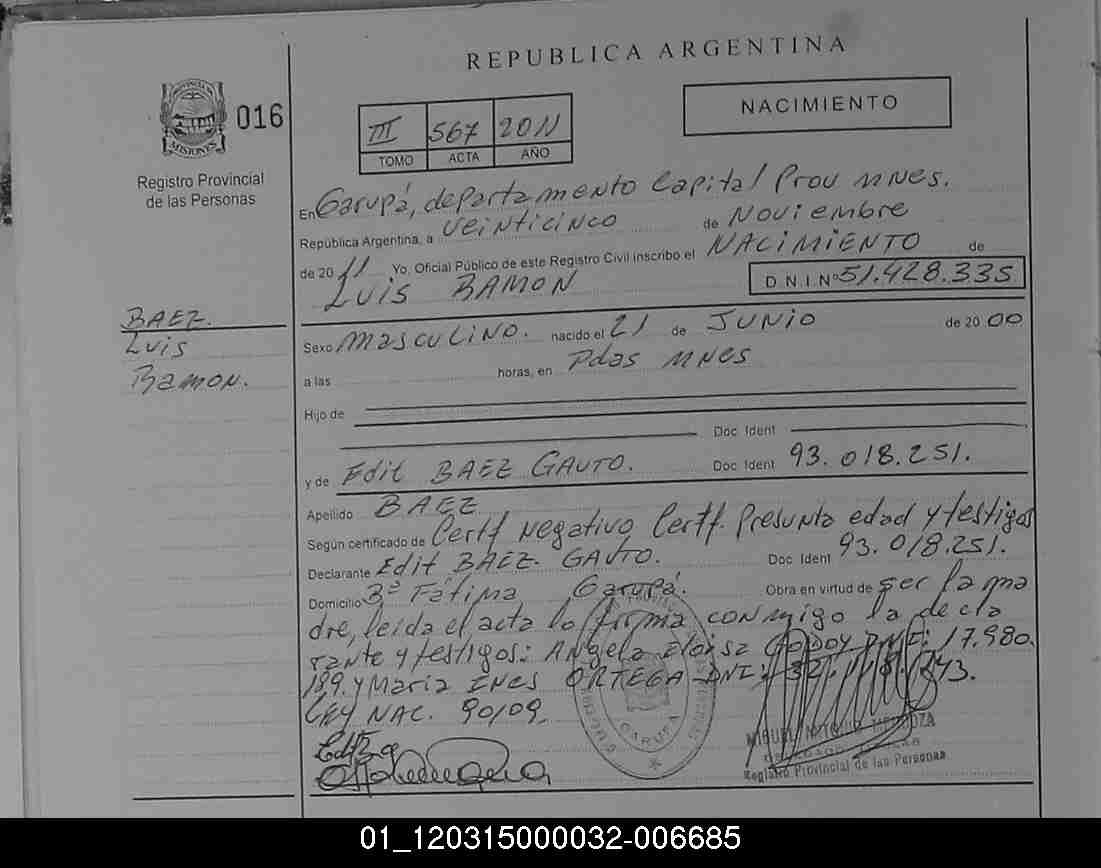 REPUBLICA ARGENTINA
PROVINCIA DE
MISIONES
016
Registro Provincial
de las Personas
III 567 2011
TOMO ACTA AÑO
NACIMIENTO
En Garupá, departamento Capital Prov MNES.
República Argentina, a veinticinco de Noviembre
de 20 11 Yo, Oficial Público de este Registro Civil inscribo el NACIMIENTO de
LUIS RAMON D.N.I.Nº 51.428.335
BAEZ
Luis
Ramon.
Sexo masculino. nacido el 21 de JUNIO de 20 00
a las horas, en Pdas MNES
Hijo de
Doc Ident
y de Edit BAEZ GAUTO. Doc Ident 93.018.251.
Apellido BAEZ
Según certificado de Certf Negativo Certf. Presunta edad y testigos
Declarante Edit BAEZ GAUTO. Doc Ident 93.018.251.
Domicilio Bº Fátima Garupá. Obra en virtud de ser la ma
dre, leida el acta lo firma conmigo la decla
rante y testigos: Angela Eloisa GODOY DNI: 17.980.
189. y Maria INES ORTEGA DNI: 32.
LEY NAC. 90/09.
GARUPA
MENDOZA
Registro Provincial de las Personas
01_120315000032-006685